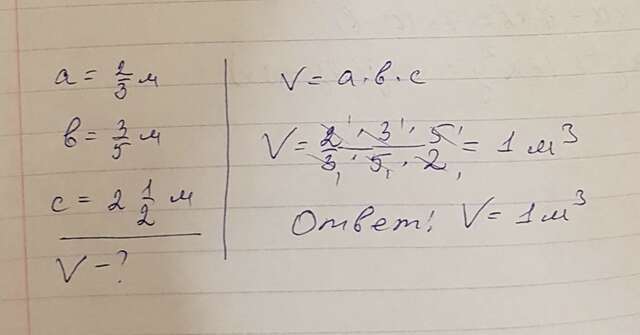 a = 2/3 м
в = 3/5 м
c = 2 1/2 м
V - ?
V = a · в · c
V = 2 · 3 · 5 / 3 · 5 · 2 = 1 м³
Ответ: V = 1 м³